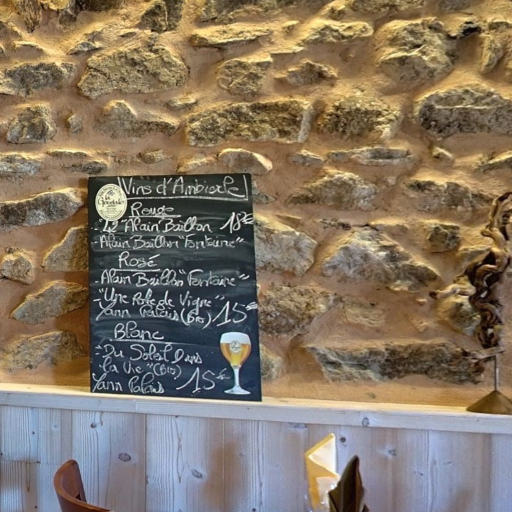 Vins d'Ambierle
Rouge
- "42" Alain Baillon 18€
- Alain Baillon "Fontaine"
Rosé
- Alain Baillon "Fontaine"
- "Une Robe de Vigne"
Yann Palais (Bio) 15€
Blanc
- "Du Soleil Dans
la Vie" (Bio)
Yann Palais 15€